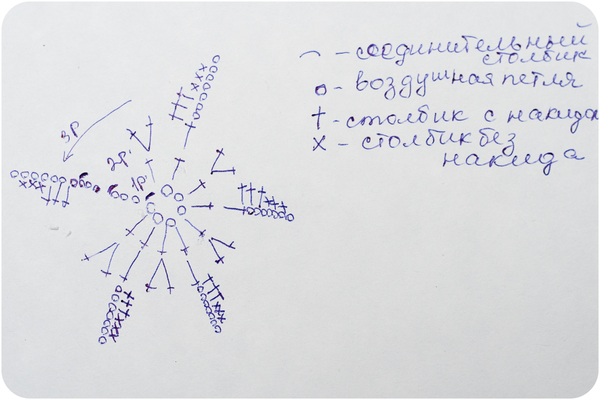 ⌒ - соединительный
столбик
o - воздушная петля
† - столбик с накидом
x - столбик без
накида
3р.
2р.
1р.